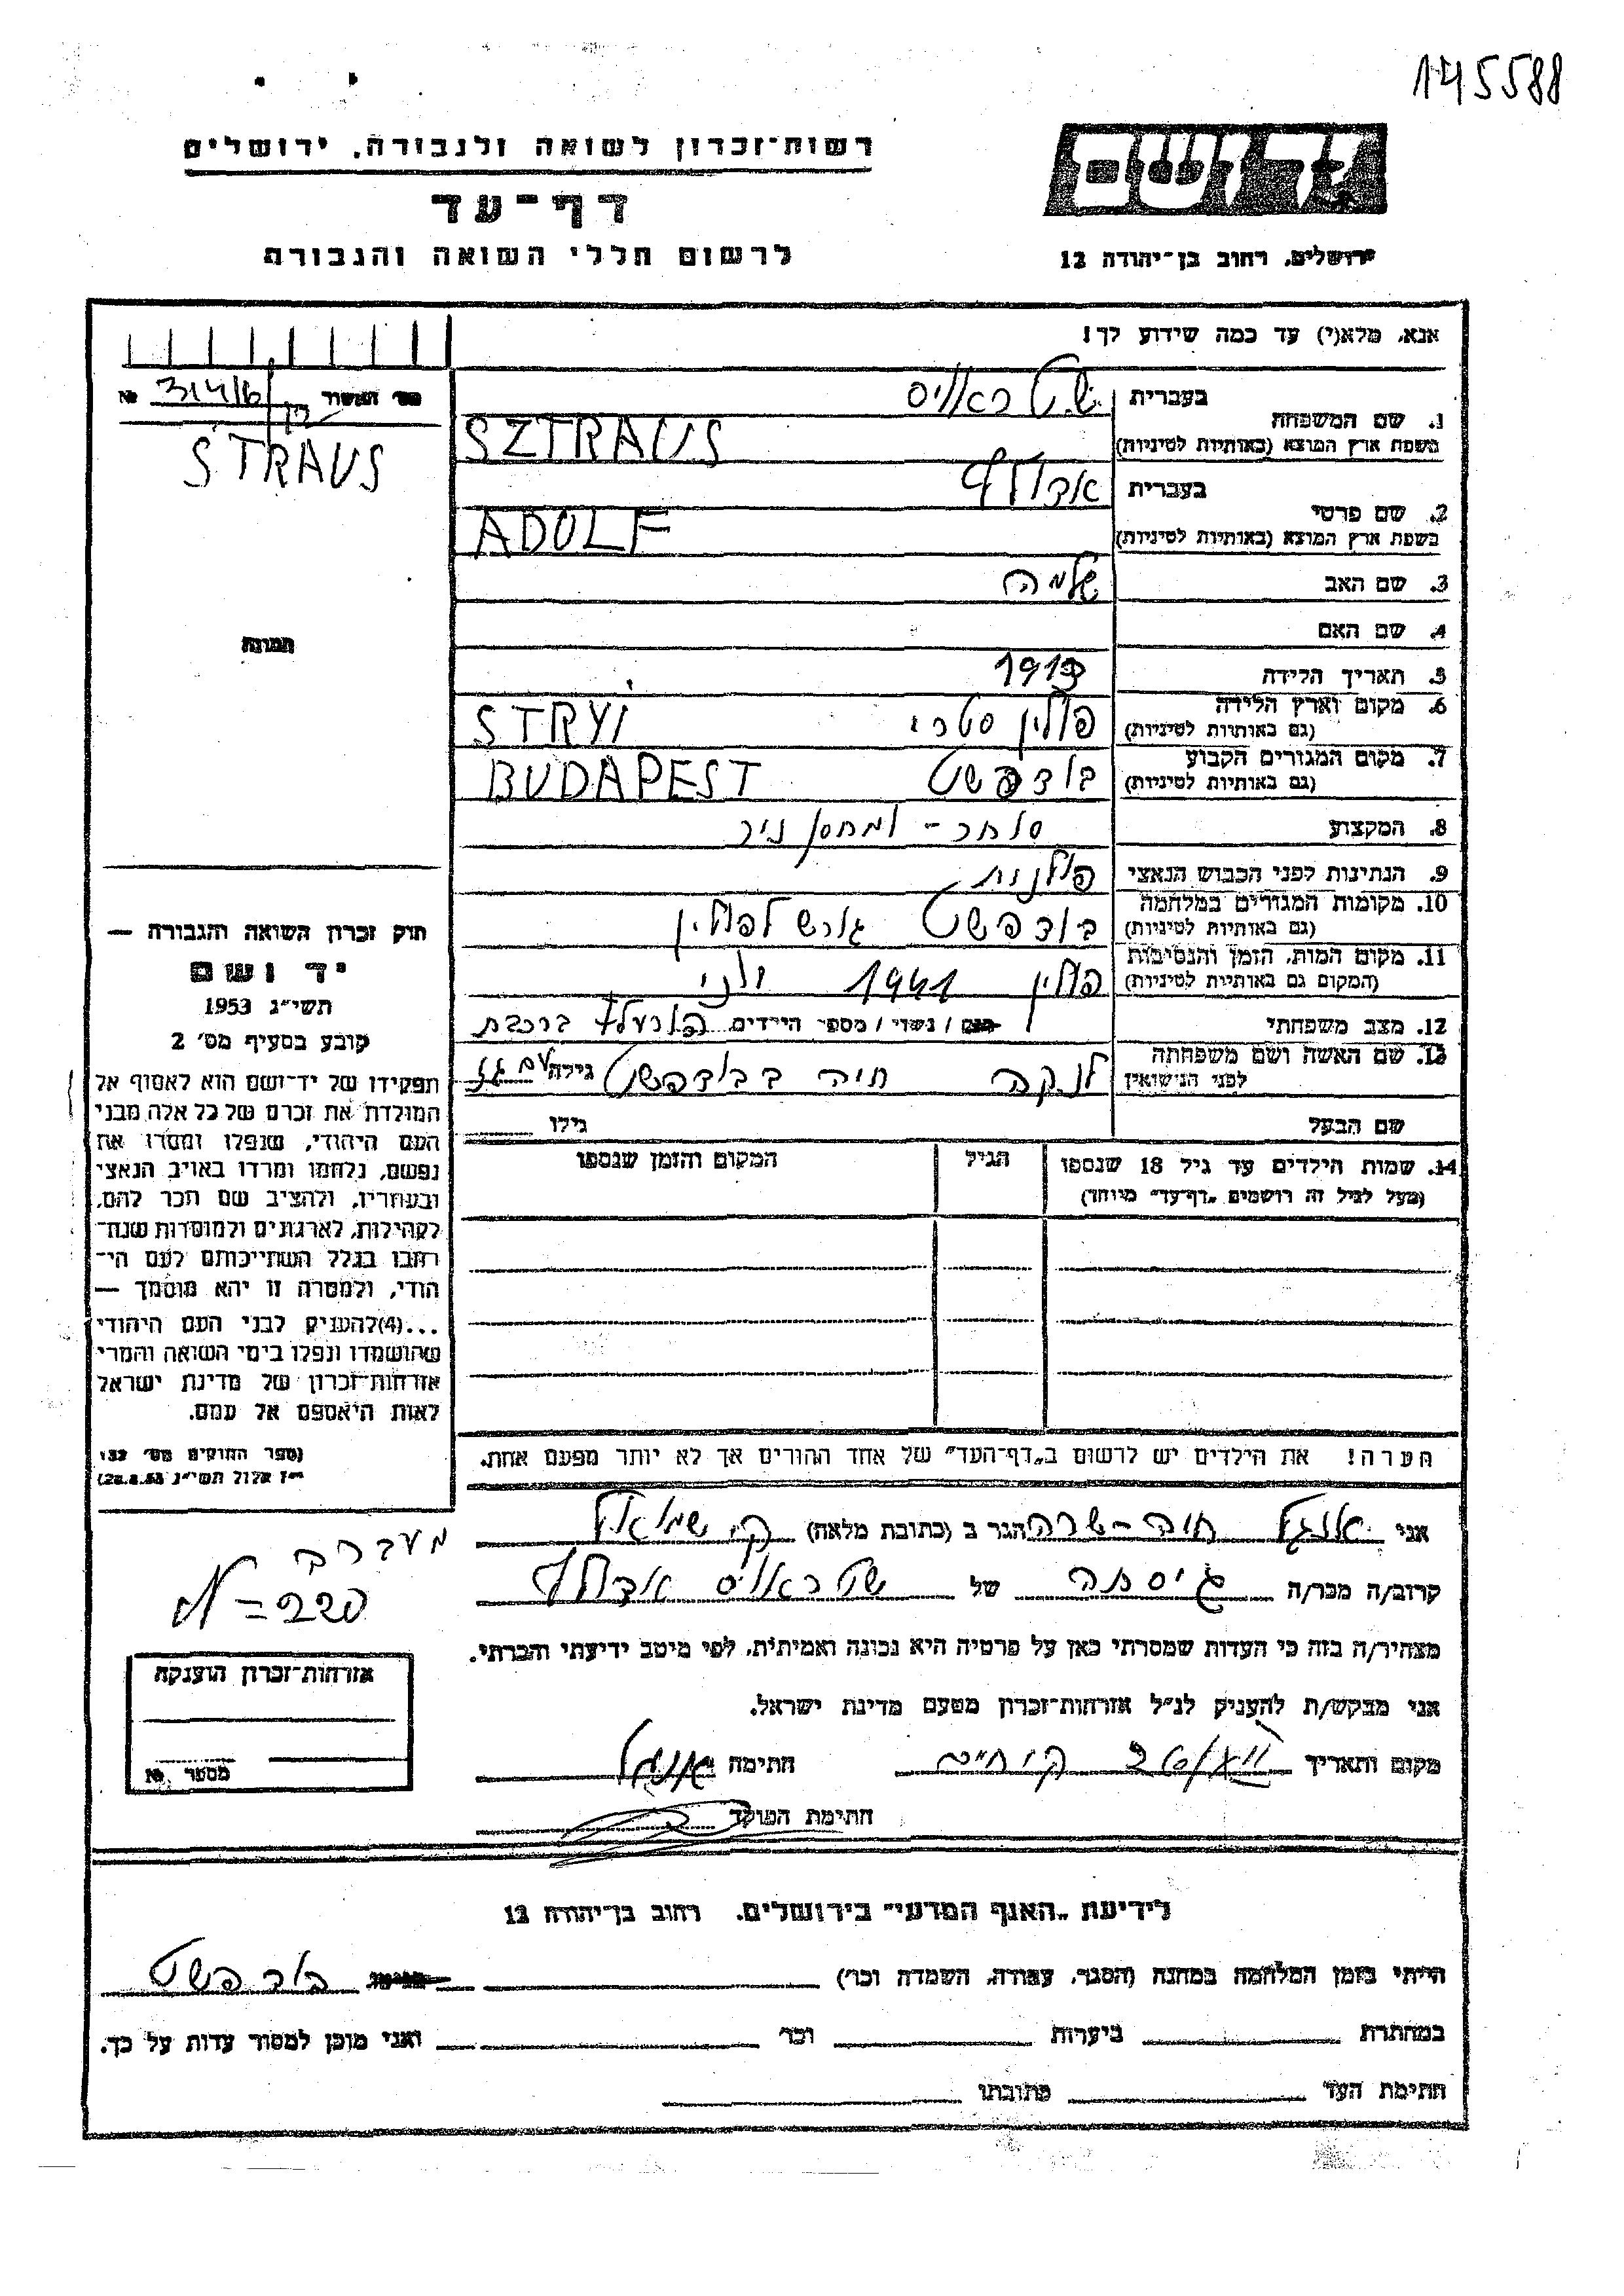 145588
רשות־זכרון לשואה ולגבורה, ירושלים
דף־עד
לרשום חללי השואה והגבורה
יד ושם
ירושלים, רחוב בן־יהודה 12
אנא, מלא(י) עד כמה שידוע לך!
מס' האשור
№ 314/6
STRAUS
תמונה
1. שם המשפחה
בעברית שטראוס
בשפת ארץ המוצא (באותיות לטיניות) SZTRAUS
2. שם פרטי
בעברית אדולף
בשפת ארץ המוצא (באותיות לטיניות) ADOLF
3. שם האב שלמה
4. שם האם
5. תאריך הלידה 1913
6. מקום וארץ הלידה
(גם באותיות לטיניות) פולין סטרי STRYI
7. מקום המגורים הקבוע
(גם באותיות לטיניות) בודפשט BUDAPEST
8. המקצוע סוחר - ומחסן נייר
9. הנתינות לפני הכבוש הנאצי פולנית
10. מקומות המגורים במלחמה
(גם באותיות לטיניות) בודפשט גורש לפולין
11. מקום המות, הזמן והנסיבות
(המקום גם באותיות לטיניות) פולין 1941
12. מצב משפחתי רווק / נשוי / מספר הילדים ברכבת
13. שם האשה ושם משפחתה
לפני הנישואין לנקה חיה בבודפשט גילה
שם הבעל גילו
14. שמות הילדים עד גיל 18 שנספו
(מעל לגיל זה רושמים "דף־עד" מיוחד)
הגיל
המקום והזמן שנספו
הערה! את הילדים יש לרשום ב"דף־העד" של אחד ההורים אך לא יותר מפעם אחת.
חוק זכרון השואה והגבורה —
יד ושם
תשי"ג 1953
קובע בסעיף מס' 2
תפקידו של יד־ושם הוא לאסוף אל
המולדת את זכרם של כל אלה מבני
העם היהודי, שנפלו ומסרו את
נפשם, נלחמו ומרדו באויב הנאצי
ובעוזריו, ולהציב שם וזכר להם,
לקהילות, לארגונים ולמוסדות שנח־
רבו בגלל השתייכותם לעם הי־
הודי, ולמטרה זו יהא מוסמך —
...(4)להעניק לבני העם היהודי
שהושמדו ונפלו בימי השואה והמרי
אזרחות־זכרון של מדינת ישראל
לאות היאספם אל עמם.
(ספר החוקים מס' 132
י"ז אלול תשי"ג 28.8.53)
אני אנגל חיה־שרה הגר ב (כתובת מלאה) ק. שמואל
קרוב/ה מכר/ה גיסתה של שטראוס אדולף
מצהיר/ה בזה כי העדות שמסרתי כאן על פרטיה היא נכונה ואמיתית, לפי מיטב ידיעתי והכרתי.
אני מבקש/ת להעניק לנ"ל אזרחות־זכרון מטעם מדינת ישראל.
מקום ותאריך חתימה אנגל
חתימת הפוקד
N=220
אזרחות־זכרון הוענקה
מספר №
לידיעת "האגף המדעי" בירושלים, רחוב בן־יהודה 12
הייתי בזמן המלחמה במחנה (הסגר, עבודה, השמדה וכו') בודפשט
במחתרת ביערות וכו' ואני מוכן למסור עדות על כך.
חתימת העד כתובתו